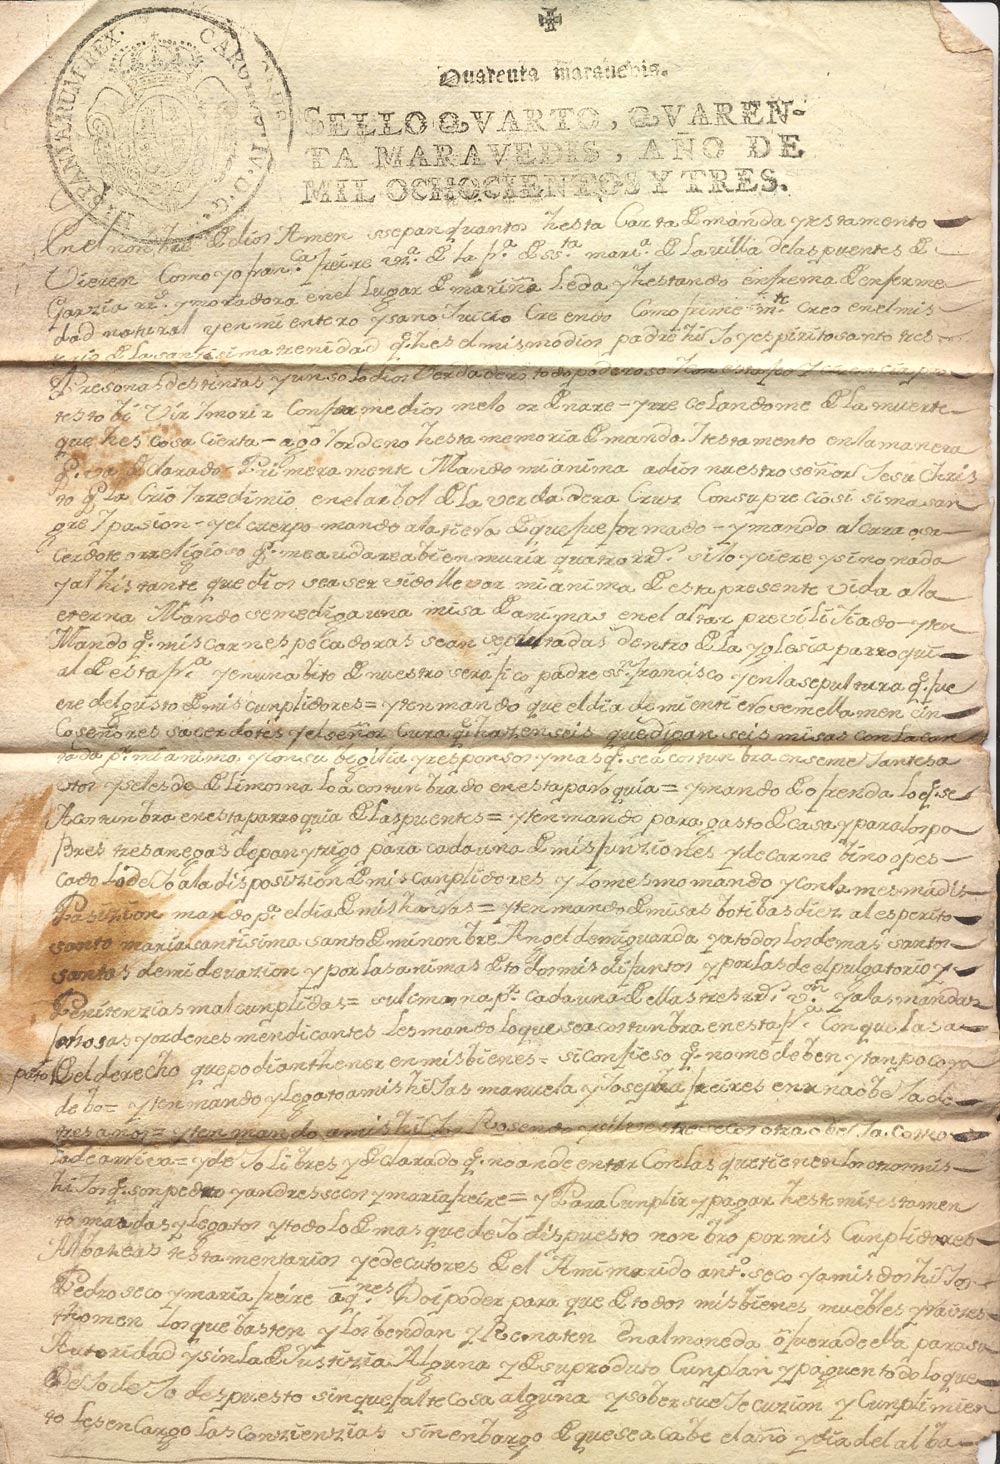 HISPANIARUM REX. CAROLUS IV. D. G.
Quarenta maravedis.
SELLO QVARTO, QVAREN-
TA MARAVEDIS, AÑO DE
MIL OCHOCIENTOS Y TRES.
En el nonbre de dios Amen sepan quantos hesta Carta de manda y testamento
Vieren Como yo fran.ca freire vz.ª de la f.ª de s.ta mari.ª de la villa de las puentes de
Garzia rr.º y moradora en el Lugar de mariña Leda y hestando enferma de enferme
dad natural y en mi entero y sano Juicio Creendo Como firmem.te Creo en el mis
terio de la santisima trenidad q.e hes el mismo dios padre hiJo y espirito santo tres
Presonas destintas y un solo dios Verdadero todo poderoso
testo bivir Imorir Confor medios me lo ordenare y rrecelandome de la muerte
que hes cosa cierta ago Iordeno hesta memoria de manda I testamento en la manera
Primeramente Mando mi anima a dios nuestro señor Jesu Chris
to q.e la Crio I rredimio en el arbol de la verdadera Cruz Con su preciosisima san
gre I pasion y el cuerpo mando a la tiera de que fue formado y mando al cura o sa
cerdote o rreligioso q.e me audare a bien murir quatro rr.s si lo yciere y si no nada
y al histante que dios sea servido llevar mi anima de esta presente vida a la
eterna Mando se me diga una misa de animas en el altar previlitiado yten
Mando q.e mis carnes pecadoras sean sepultadas dentro de la yglesia parroqui
al de esta f.ª y en un abito de nuestro serafico padre s.n francisco y en la sepultura q.e fue
ere del gusto de mis cunplidores = yten mando que el dia de mi entiero se me llamen cin
co señores sacerdotes y el señor Cura q.e hazen seis que digan seis misas con la can
tada p.r mi anima y con su begilia y responsos y mas q.e se a costunbra en semeJantes a
utos y seles de de limosna lo a costunbrado en esta paroquia = y mando de ofrenda lo q.e se
Acostunbra en esta parroquia de las puentes = yten mando para gasto de casa y para los po
bres tres anegas de pan y trigo para cada una de mis funziones y de carne bino o pes
cado lo deJo a la disposizion de mis cunplidores y lo mesmo mando y con la mesma dis
Posizion mando p.ª el dia de mis honrras = yten mando de misas botibas diez al espirito
santo maria santisima santo de mi nonbre Angel de mi guarda y a todos los demas santos
santas de mi devazion y por las animas de todos mis difuntos y por las de el pulgatorio y
Penitenzias mal cunplidas = su limosna p.r cada una de ellas tres rr.s v.on y a las mandas
forsosas y ordenes mendicantes Les mando lo que se a costunbra en esta f.ª Con que las a
parto de el derecho que podian thener en mis bienes = si confieso q.e no me deben y tanpoco yo
debo = yten mando y legato a mis hiJas manuela y Josepha freires en una obeJa de
tres años = yten mando a mis hiJos Rosendo y silvestre seco otra obeJa como
la de arriva = y deJo libres y declarado q.e no an de entrar Con las que tienen los otros mis
hiJos q.e son pedro y andres seco y maria freire = y Para Cunplir y pagar heste mi testamen
to mandas y Legatos y todo lo demas que deJo dispuesto nonbro por mis Cunplidores
Albaceas testamentarios y edecutores de el A mi marido ant.º seco y a mis dos hiJos
Pedro seco y maria freire a q.nes Doi poder para que de todos mis bienes muebles y raices
thomen los que basten y los bendan y Rematen En almoneda o fuera de ella para su
Autoridad y sin la de Justizia Alguna y de su produto Cunplan y paguen todo lo que
DeJo despuesto sin que falte cosa alguna y sober su eJecuzion y Cunplimien
to Les encargo las conzienzias sin enbargo de que sea cabe el año y dia del alba